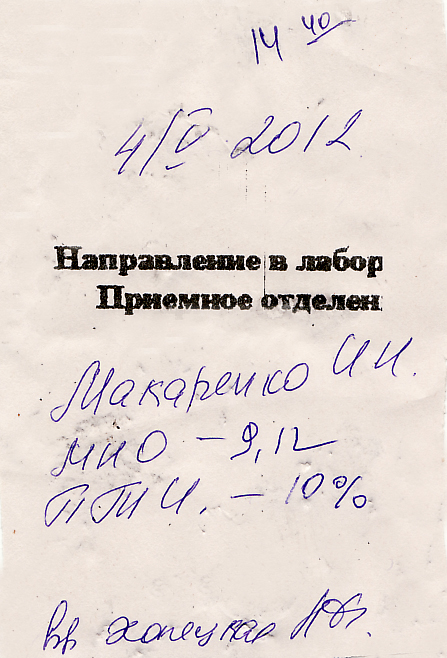 14 40
4/V 2012
Направление в лабор
Приемное отделен
Макаренко И И.
МНО – 9,12
ПТИ. – 10%
вр